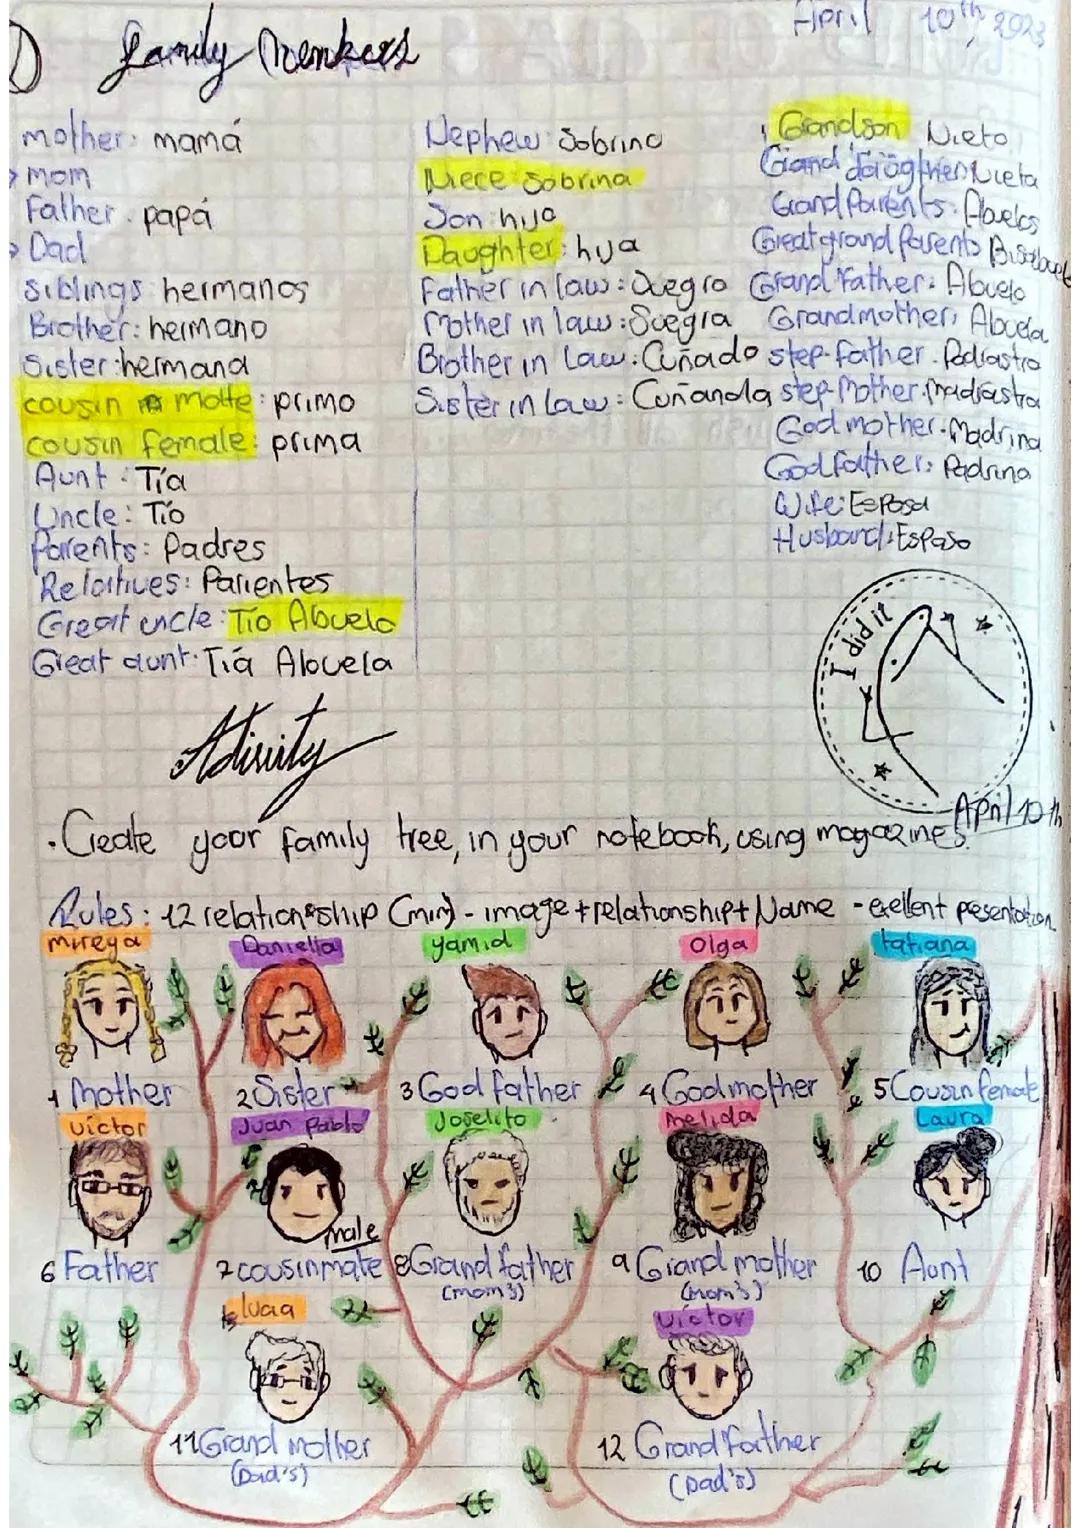 April 10th, 2023
Family Members
mother: mamá
mom
Father: papá
Dad
siblings: hermanos
Brother: hermano
Sister: hermana
cousin malte: primo
cousin female: prima
Aunt: Tía
Uncle: Tío
Parents: Padres
Relatives: Parientes
Great uncle: Tío Abuelo
Great aunt: Tía Abuela
Nephew: Sobrino
Niece: Sobrina
Son: hijo
Daughter: hija
Father in law: Suegro
Mother in law: Suegra
Brother in law: Cuñado
Sister in law: Cuñanda
Grandson Nieto
Grand Nieta
Grand Parents: Abuelos
Great grand parents
Grand Father: Abuelo
Grandmother: Abuela
step-father: Padrastro
step Mother: madrastra
God mother: Madrina
God father: Padrino
Wife: Esposa
Husband: Esposo
I did it
April 10th
Activity
· Create your family tree, in your notebook, using magazines.
Rules: 12 relationship (min) - image + relationship + Name - exellent presentation
mireya Daniella yamid Olga tatiana
1 Mother 2 Sister 3 God father 4 Godmother 5 Cousin female
victor Juan Pablo Joselito melida Laura
male
6 Father 7 cousin mate 8 Grand father 9 Grand mother 10 Aunt
(mom's) (mom's)
victor
11 Grand mother 12 Grand father
(Dad's) (Dad's)